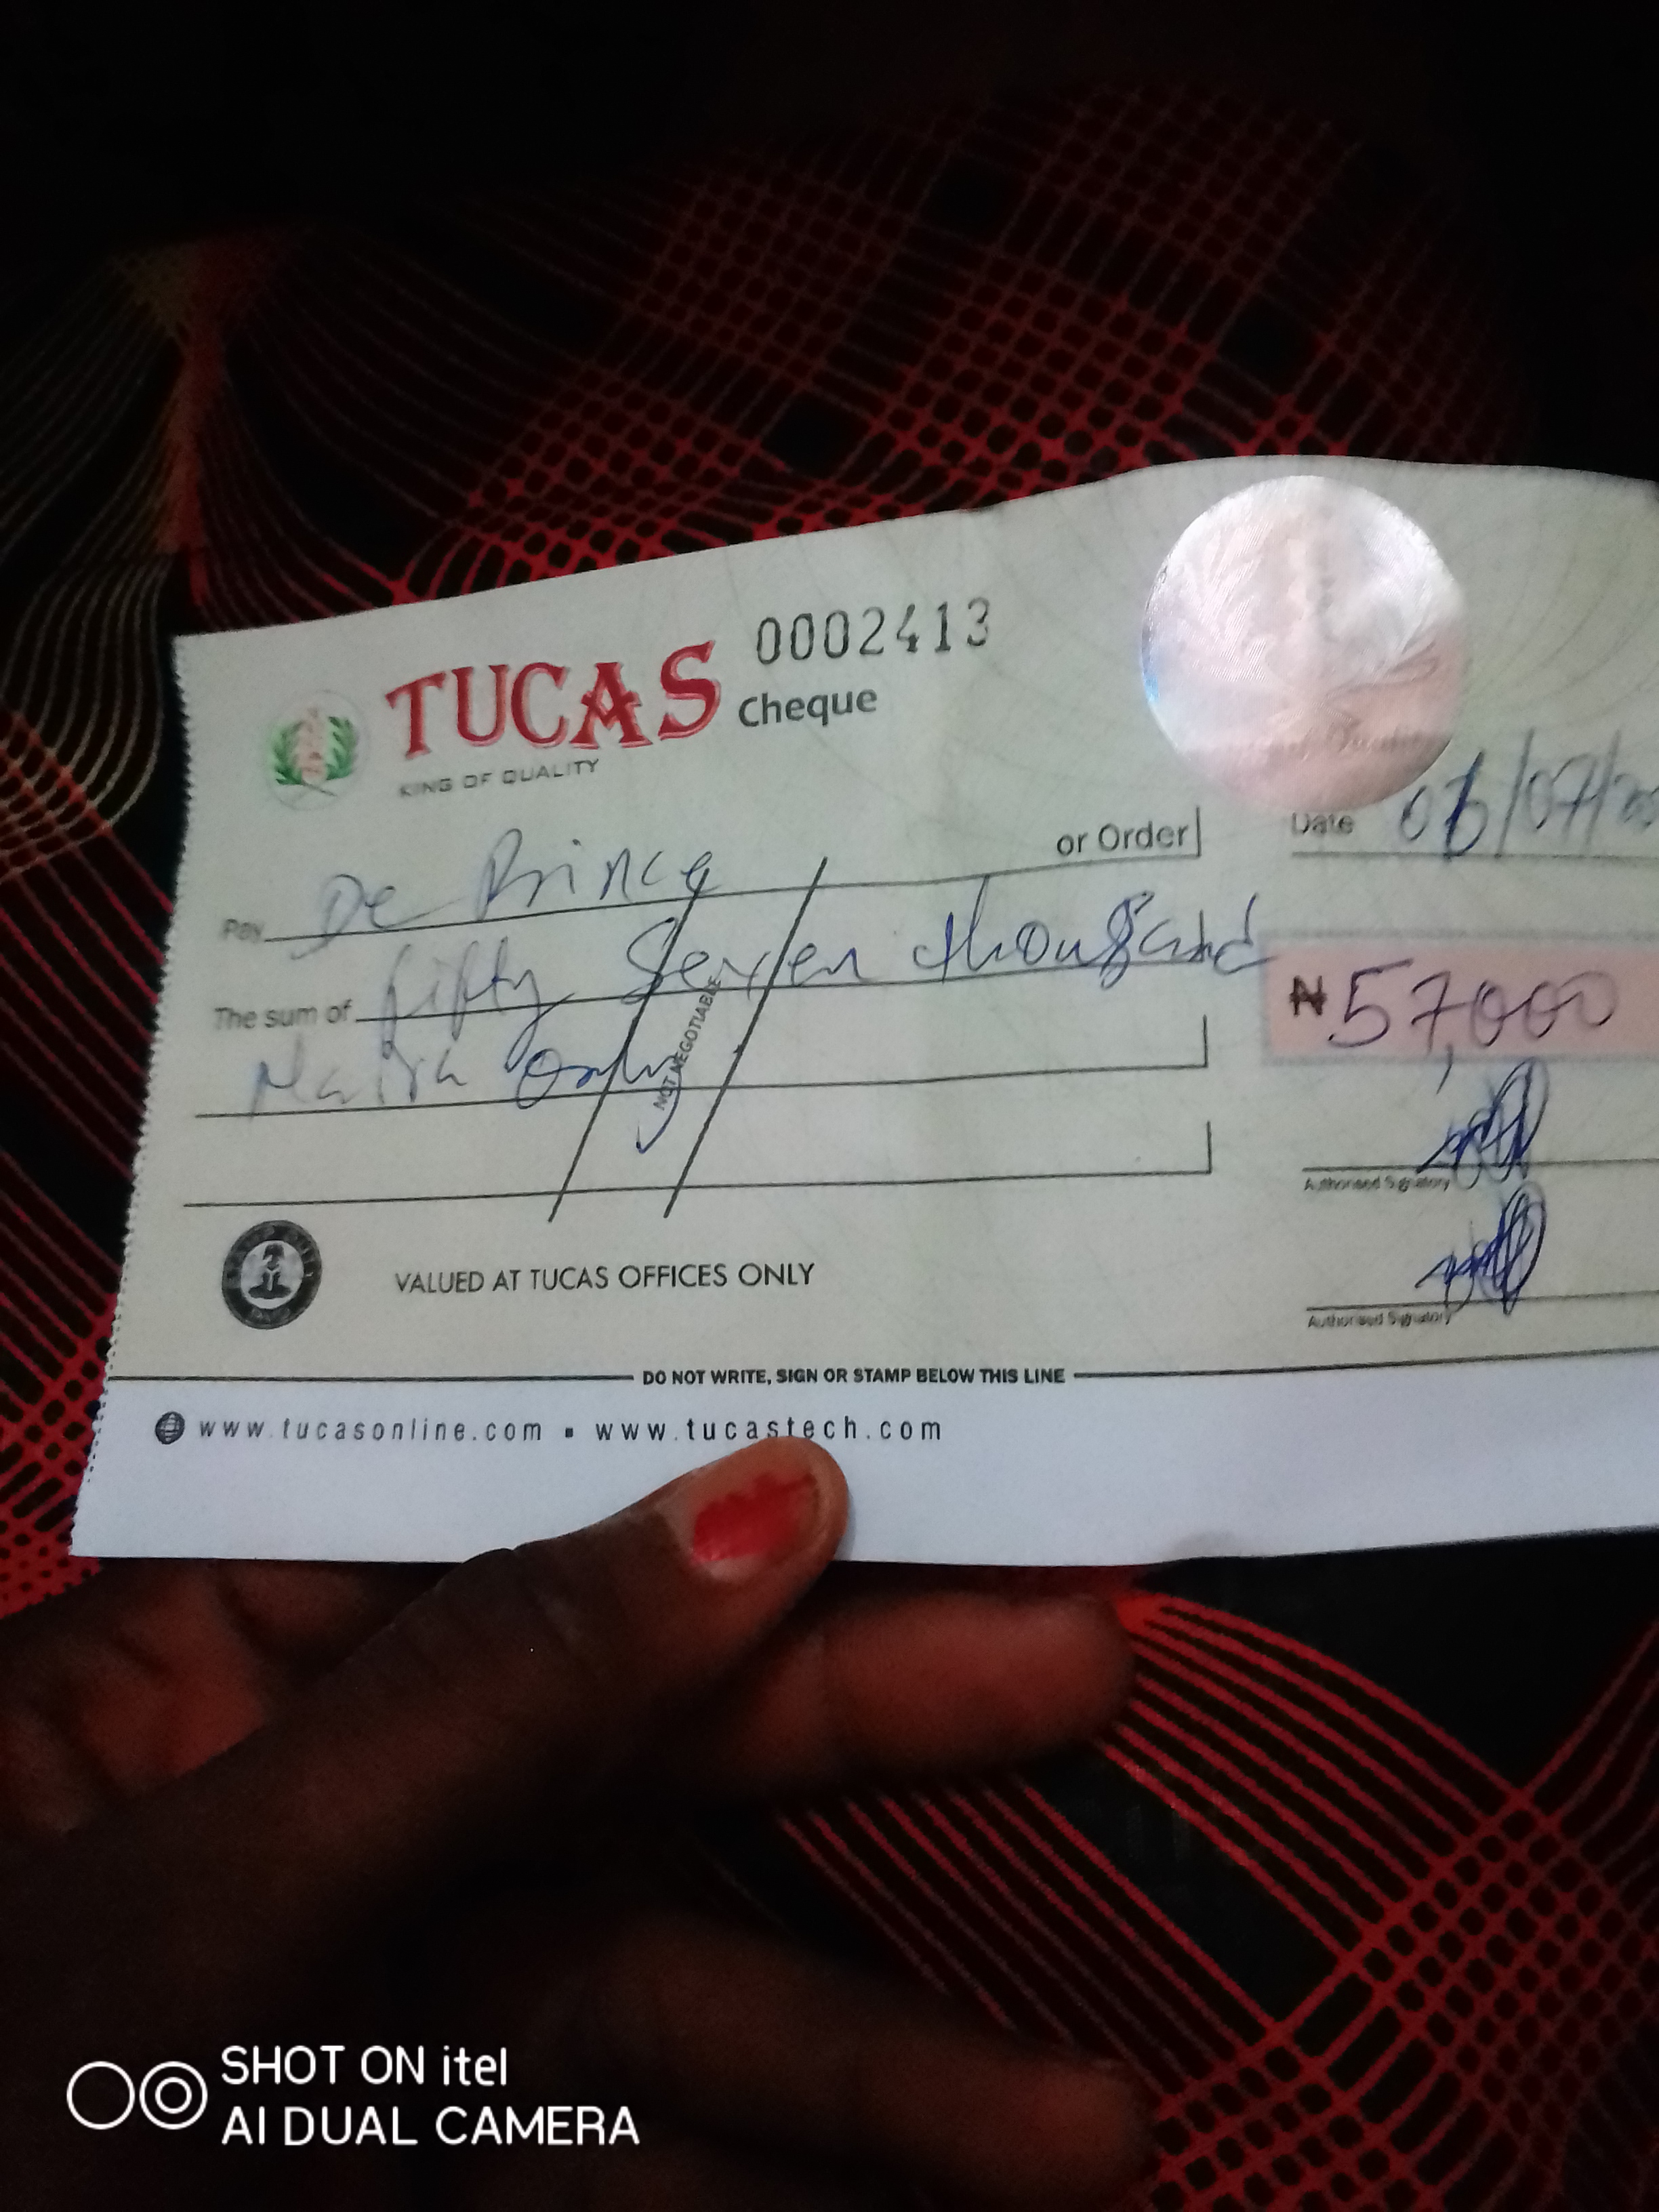 TUCAS 0002413
Cheque
KING OF QUALITY
Date 06/07/20
Pay De Prince or Order
The sum of fifty Seven thousand
₦57,000
Naira Only
NOT NEGOTIABLE
Authorised Signatory
Authorised Signatory
VALUED AT TUCAS OFFICES ONLY
DO NOT WRITE, SIGN OR STAMP BELOW THIS LINE
www.tucasonline.com ▪ www.tucastech.com
SHOT ON itel
AI DUAL CAMERA